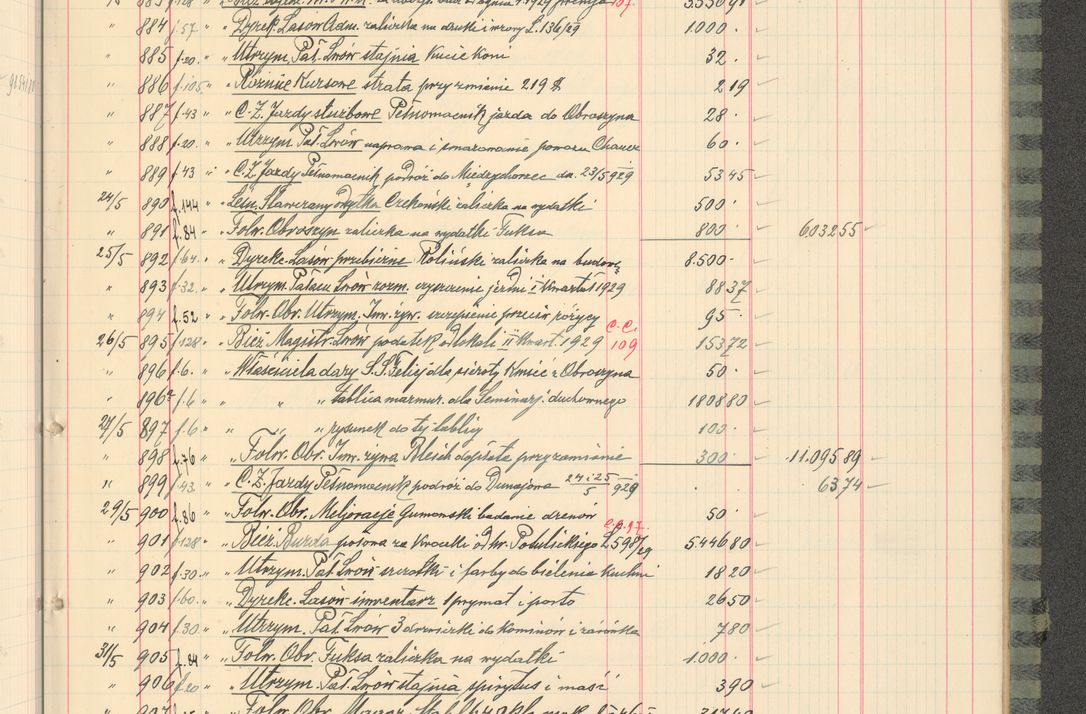 " 884 f.57 " " Dyrek. Lasów Adm. zaliczka na druki i wzory L.136/29 1.000 ·
" 885 f.20. " " Utrzym. Pał. Lwów stajnia Kucie Koni 32 ·
" 886 f.105 " " Różnice Kursowe strata przy zmianie 219 $ 219
" 887 f.43 " " C.Z. Jazdy służbowe Pełnomocnik jazda do Obroszyna 28 ·
" 888 f.20. " " Utrzym. Pał. Lwów naprawa i smarowanie powozu 60 ·
" 889 f.43 " " C.Z. Jazdy Pełnomocnik podróż do dn. 23/5 929 53 45
24/5 890 f.144 " zaliczka na wydatki 500 ·
" 891 f.84 " " Folw. Obroszyn zaliczka na wydatki Fuksa 800 · 6.032 55
25/5 892 f.64. " " Dyrekc. Lasów przebierne Roliński zaliczka na budowę 8.500 ·
" 893 f.32. " " Utrzym. Pałacu Lwów rozm. czyszczenie jezdni i Kwartał 1929 88 37
" 894 f.52 " " Folw. Obr. Utrzym. Inw. żyw. szczepienie przeciw różycy 95 ·
26/5 895 f.128 " " Bież. Magistr. Lwów podatek od lokali II Kwart. 1929 C.C. 109 153 72
" 896 f.6. " " Właściciela dary S.S. Felicj. dla sieroty Kmieć z Obroszyna 50 ·
" 896ª f.6 " " " " tablica marmur. dla Seminarj. duchownego 1808 80
27/5 897 f.6 " " " " rysunek do tej tablicy 100 ·
" 898 f.76 " Folw. Obr. Inw. żywa Bleich dopłata przy zamianie 300 · 11.095 89
" 899 f.43. " " C.Z. Jazdy Pełnomocnik podróż do Dunajowa 24 i 25/5 929 · · 63 74
29/5 900 f.86 " Folw. Obr. Meljoracje Gumowski badanie drenów 50 ·
" 901 f.128 " " Bież. Burda za Kroczki od hr. Potulickiego L.598/29 C.C.97. 5.446 80
" 902 f.30. " " Utrzym. Pał. Lwów szczotki i farby do bielenia kuchni 18 20
" 903 f.60. " " Dyrekc. Lasów inwentarz 1 prymat i porto 26 50
" 904 f.30. " " Utrzym. Pał. Lwów 3 drzwiczki do Kominów i żarówka 7 80
31/5 905 f.84 " " Folw. Obr. Fuksa zaliczka na wydatki 1.000 ·
" 906 f.20 " " Utrzym. Pał. Lwów stajnia spirytus i maść 3 90